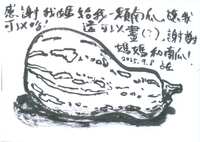 感謝我媽給我一顆南瓜,讓我
可以吃!還可以畫(?),謝謝
媽媽和南瓜!
2025.9.8